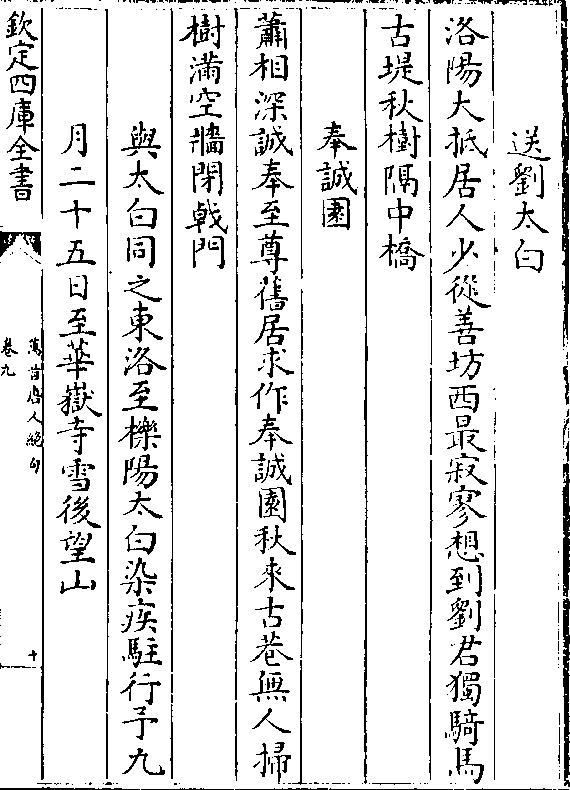 送劉太白
洛陽大抵居人少從善坊西最寂寥想到劉君獨騎馬
古堤秋樹隔中橋
奉誠園
蕭相深誠奉至尊舊居求作奉誠園秋來古巷無人掃
樹滿空牆閉戟門
與太白同之東洛至櫟陽太白染疾駐行予九
月二十五日至華嶽寺雪後望山
欽定四庫全書
萬首唐人絕句
卷九
十